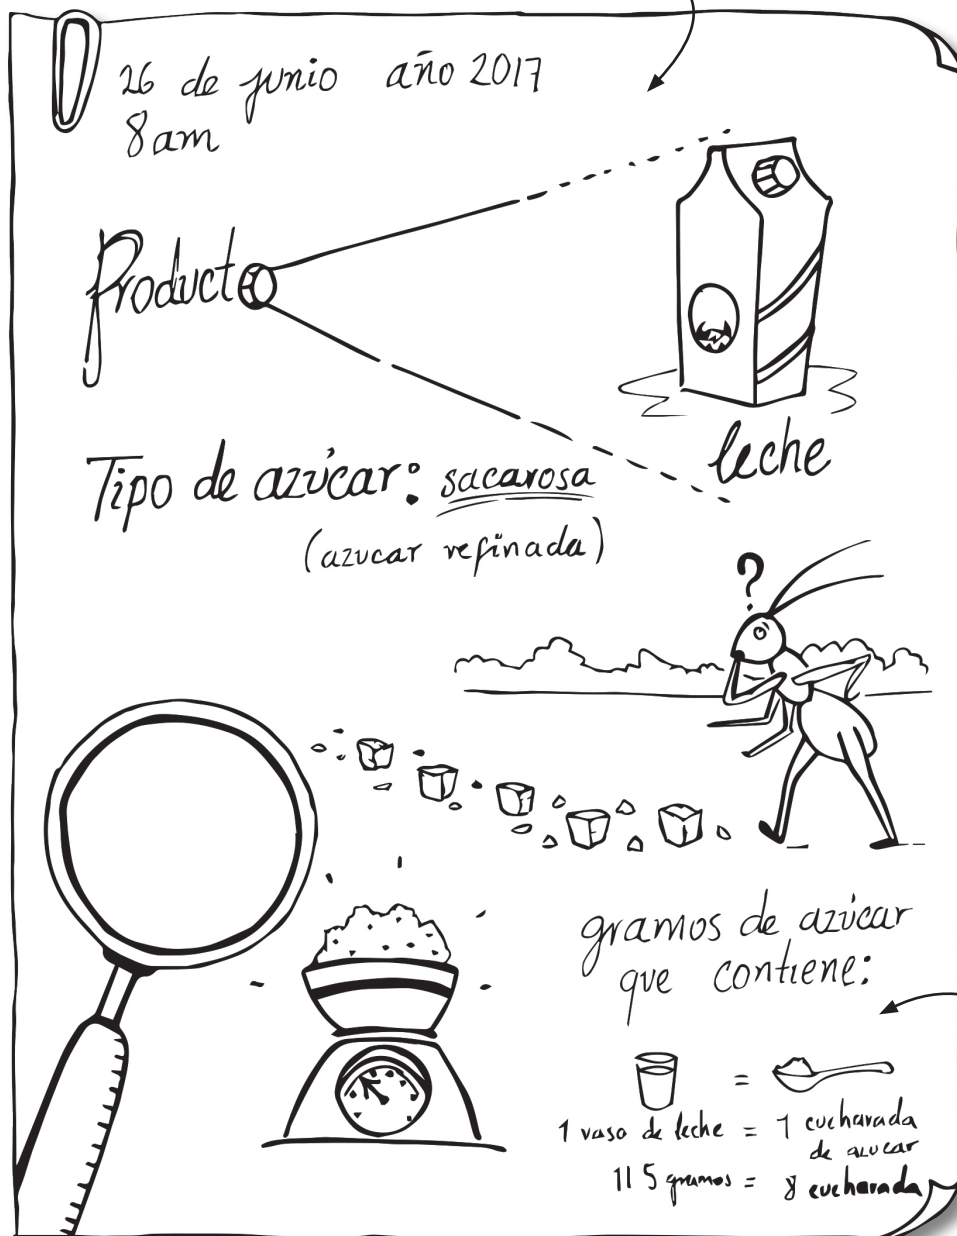 26 de junio año 2017
8am
Producto
leche
Tipo de azúcar: sacarosa
(azucar refinada)
?
gramos de azúcar
que contiene:
=
1 vaso de leche = 1 cucharada
de azucar
115 gramos = 8 cucharada